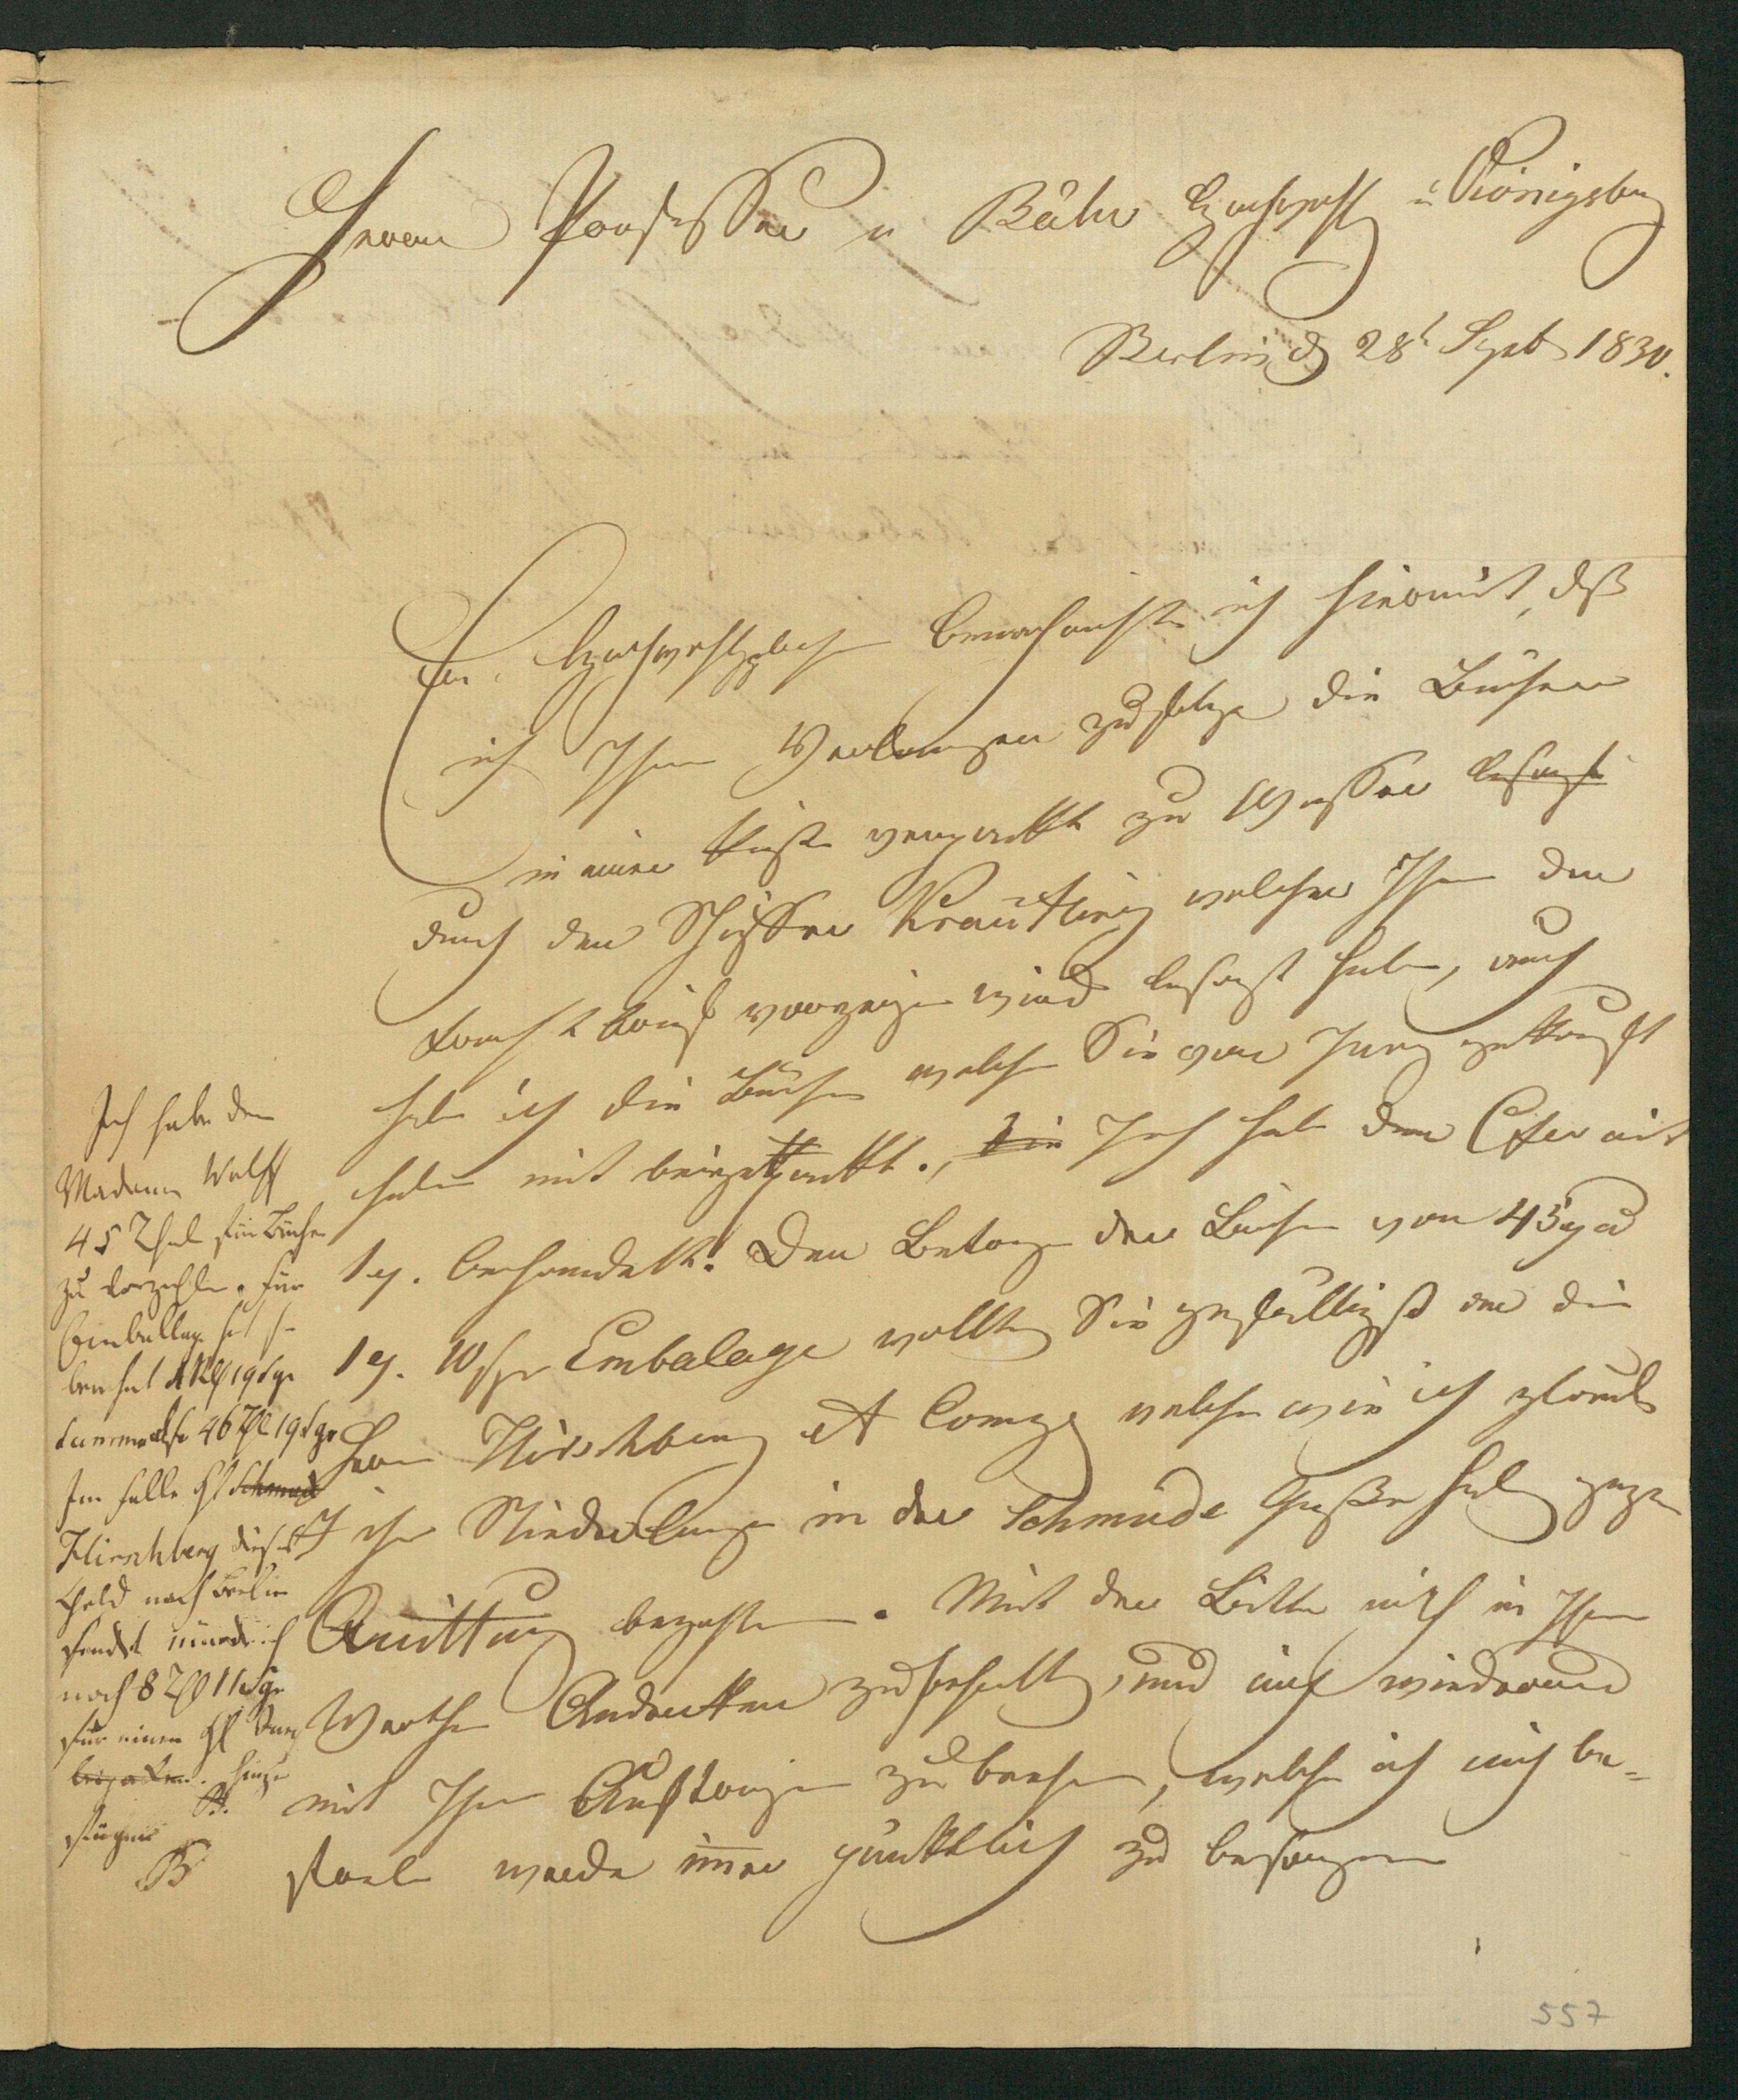 Herrn Professor v Bähr Hochgeb. in Königsberg
Berlin d 28t Sept 1830.
Ew. benachrichte ich hiermit, daß
ich Ihrem Verlangen zu folge die Bücher
in einer Kiste verpackt zu Wasser besorgt
durch den Schiffer welcher Ihnen den
Frachtbrief vorzeigen wird besorgt habe, auch
habe ich die Bücher welche Sie von Jung gekauft
haben mit beigepackt., die Ich habe den Ctr mit
behandelt. Den Betrag der Bücher von 45
Embalage wollen Sie gefälligst an die
Herrn Hirschberg et Comp welche wie ich glaube
ihre Niederlage in der Schmiede Gasse haben gegen
Quittung bezahlen. Mit der Bitte mich in Ihrem
Werthen Andenken zu behalten, und mich wiederum
mit Ihren Aufträgen zu beehren, welche ich mich be-
streben werde immer pünktlich zu besorgen
Ich habe der
Madam Wolff
45 Thal für Bücher
zu bezahlen. für
Emballage hat sie
berechnet 1 Rth 19 Sgr
Summa also 46 Thl 19 Sgr
Im Falle H Schmied
Hirschberg dieses
Geld nach Berlin
sendet würde ich
noch 8 Thl 11 Sgr
für einen H Jung
beipacken. hinzu
fügen
B
557